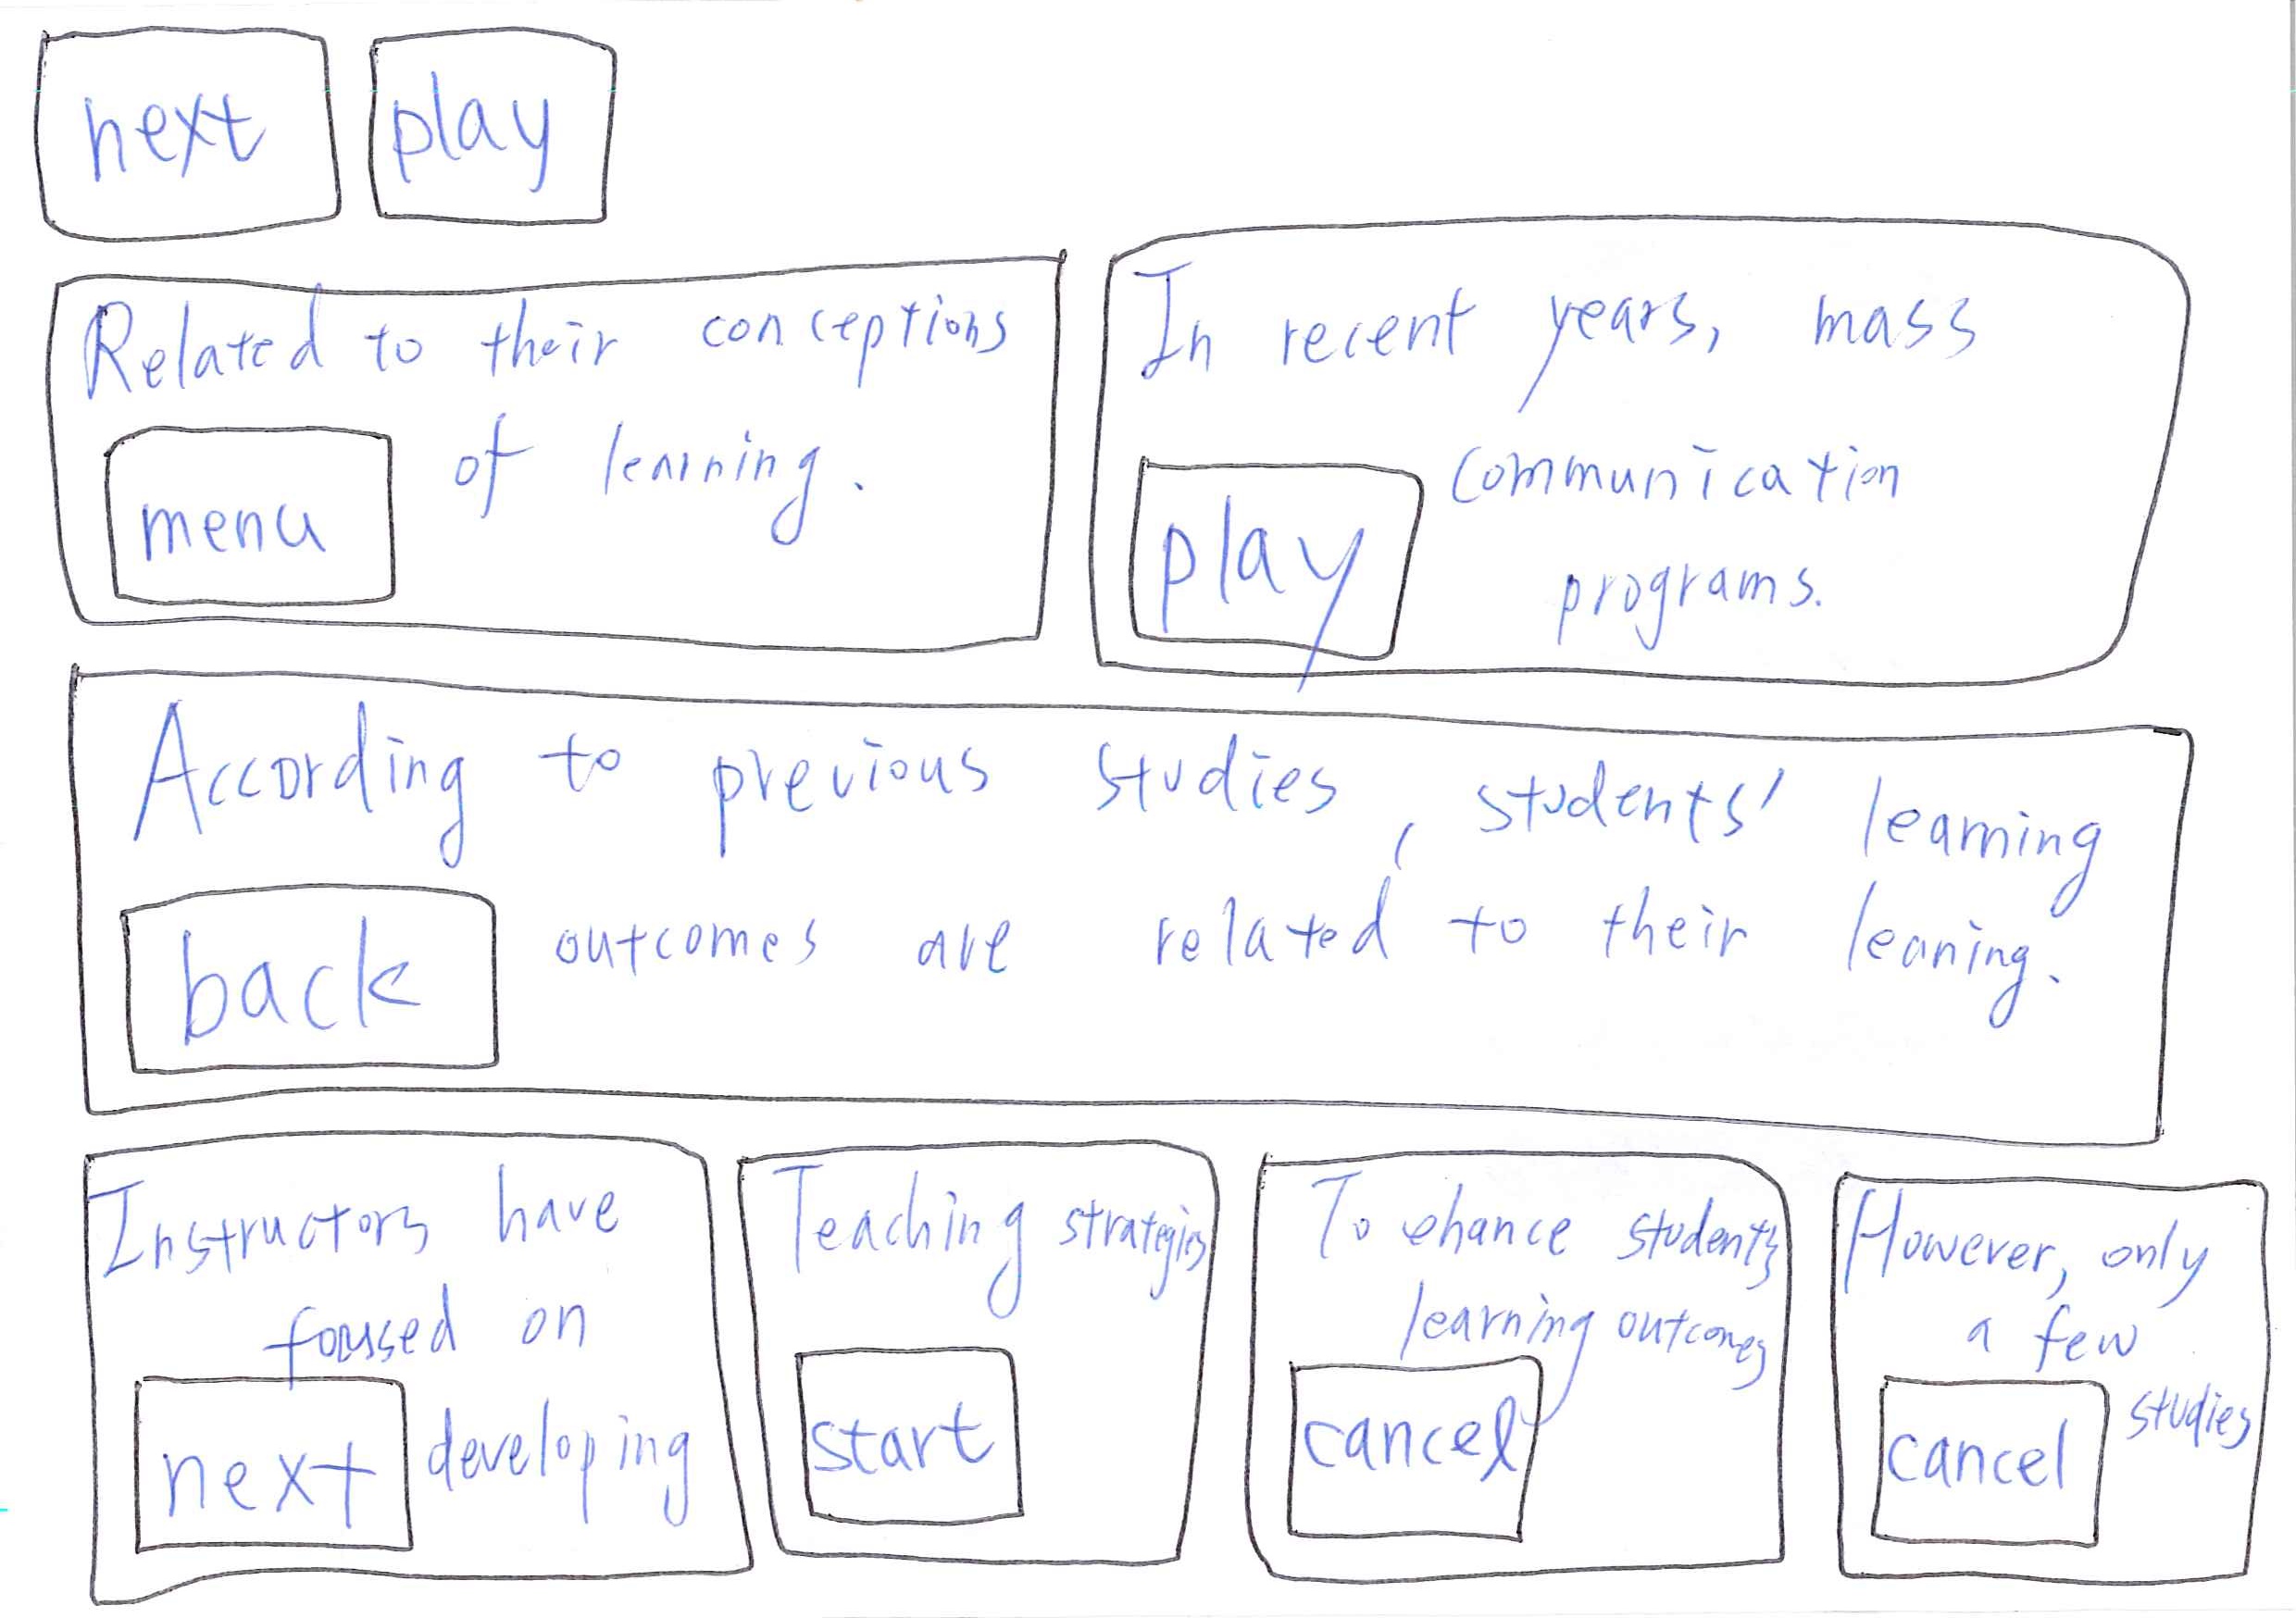 next play
Related to their conceptions
of learning.
menu
In recent years, mass
communication
play
programs.
According to previous studies, students' learning
back outcomes are related to their leaning.
Instructors have
focused on
next developing
Teaching strategies
start
To ehance students
learning outcomes
cancel
However, only
a few
studies
cancel